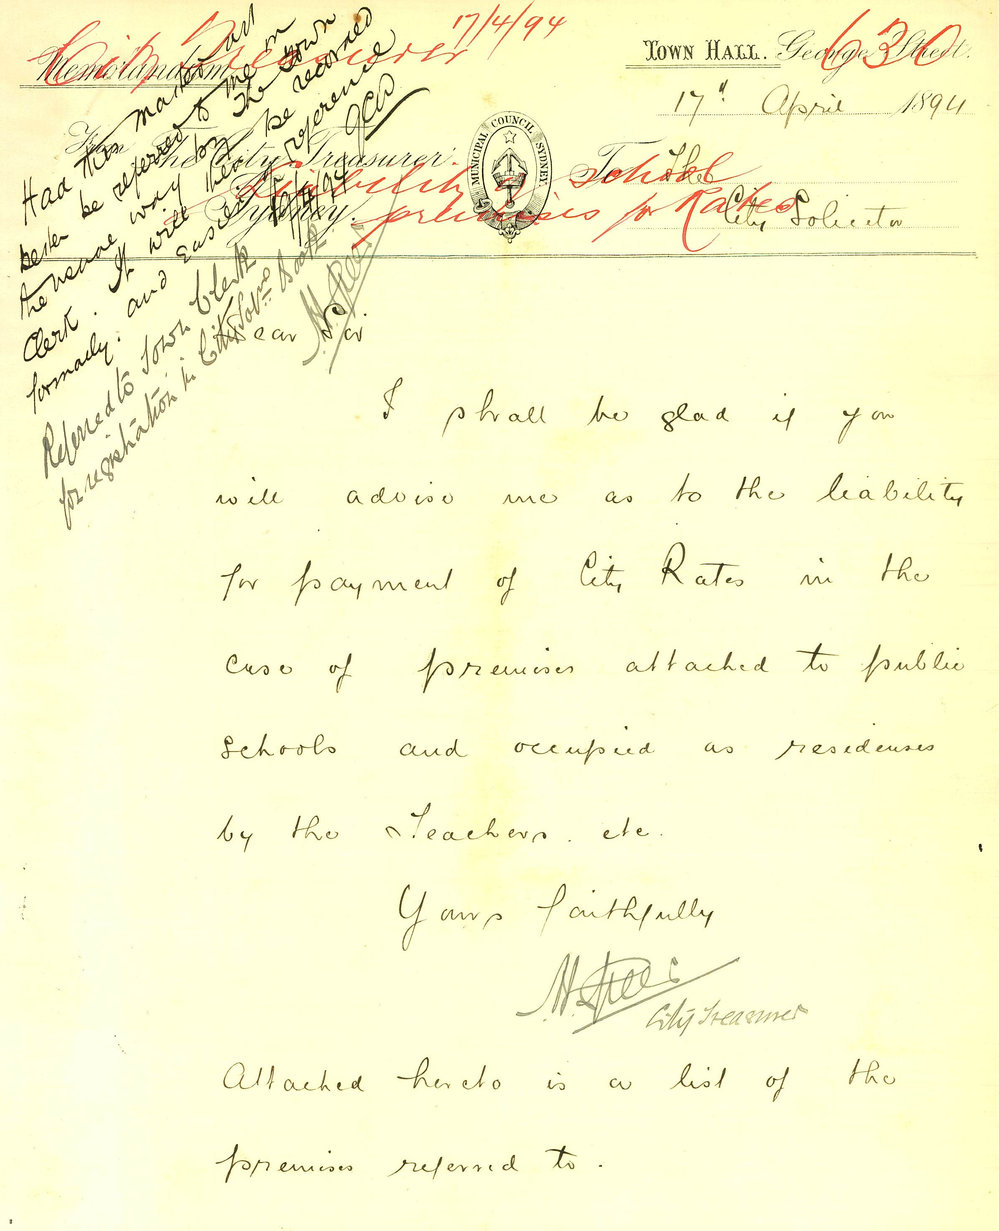 City Treasurer 17/4/94
630
Memorandum
TOWN HALL. George Street.
17" April 1894
From The City Treasurer.
Sydney.
MUNICIPAL COUNCIL SYDNEY
The
City Solicitor
Liability of School
premises for Rates
Had this matter
be referred to me in
the usual way by the Town
Clerk. It will then be recorded
formally. and easier of reference
18/4/94
Referred to Town Clerk
for registration in
Dear Sir
I shall be glad if you
will advise me as to the liability
for payment of City Rates in the
case of premises attached to public
schools and occupied as residenses
by the Teachers. etc.
Yours faithfully
City Treasurer
Attached hereto is a list of the
premises referred to.